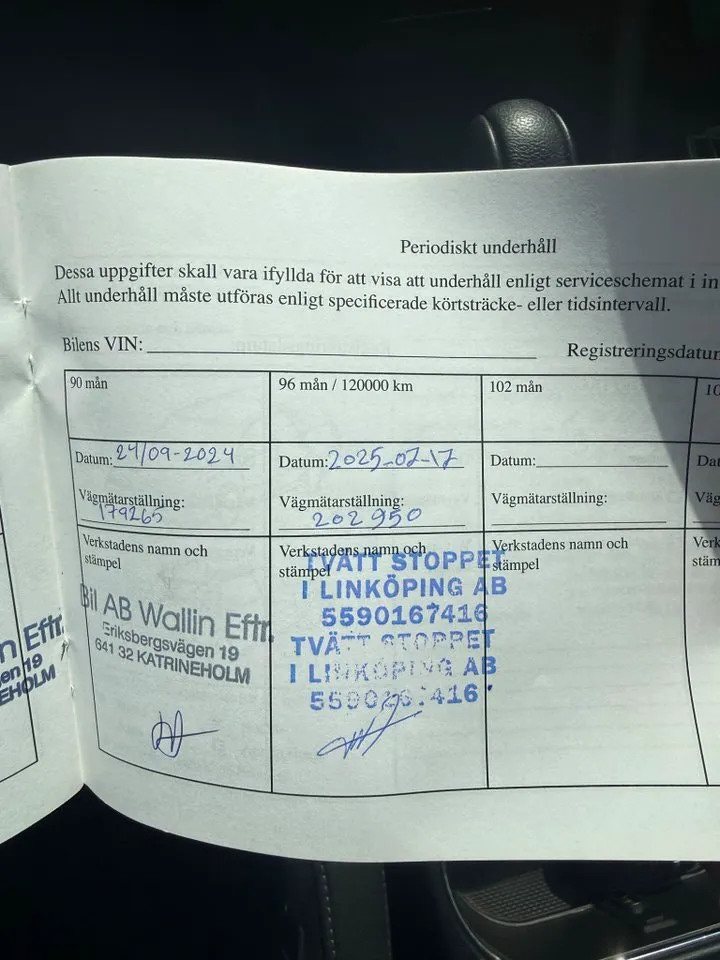 Periodiskt underhåll
Dessa uppgifter skall vara ifyllda för att visa att underhåll enligt serviceschemat i in
Allt underhåll måste utföras enligt specificerade körtsträcke- eller tidsintervall.
Bilens VIN:
Registreringsdatum
90 mån
Datum: 24/09-2024
Vägmätarställning:
179265
Verkstadens namn och
stämpel
Bil AB Wallin Eftr.
Eriksbergsvägen 19
641 32 KATRINEHOLM
96 mån / 120000 km
Datum: 2025-07-17
Vägmätarställning:
202 950
Verkstadens namn och
stämpel
TVÄTT STOPPET
I LINKÖPING AB
5590167416
TVÄTT STOPPET
I LINKÖPING AB
5590167416
102 mån
Datum:
Vägmätarställning:
Verkstadens namn och
stämpel
10
Dat
Väg
Verk
stäm
n Eftr.
en 19
EHOLM